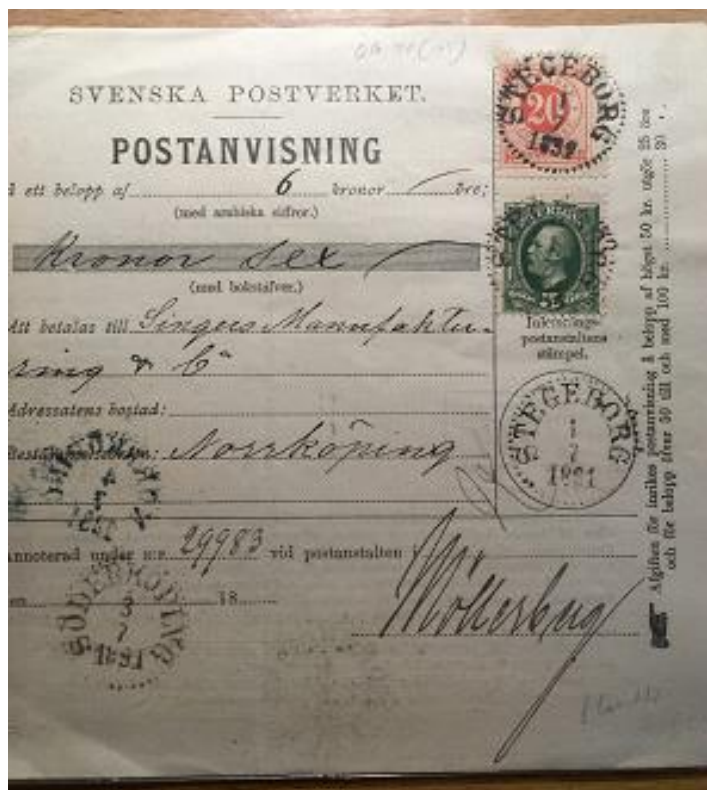 SVENSKA POSTVERKET.
POSTANVISNING
å ett belopp af 6 kronor öre;
(med arabiska siffror.)
Kronor sex
(med bokstäfver.)
Att betalas till Singers Manufaktu-
ring & Co
Adressatens bostad:
Norrköping
Annoterad under n:r 29983 vid postanstalten i
den 18
Möllerberg
STEGEBORG
1
7
20
STEGEBORG
SVERIGE
Inlemnings-
postanstaltens
stämpel.
STEGEBORG
1
7
1891
SÖDERKÖPING
3
7
1891
Afgiften för inrikes postanvisning å belopp af högst 50 kr. utgör 25 öre
och för belopp öfver 50 till och med 100 kr. 30 „